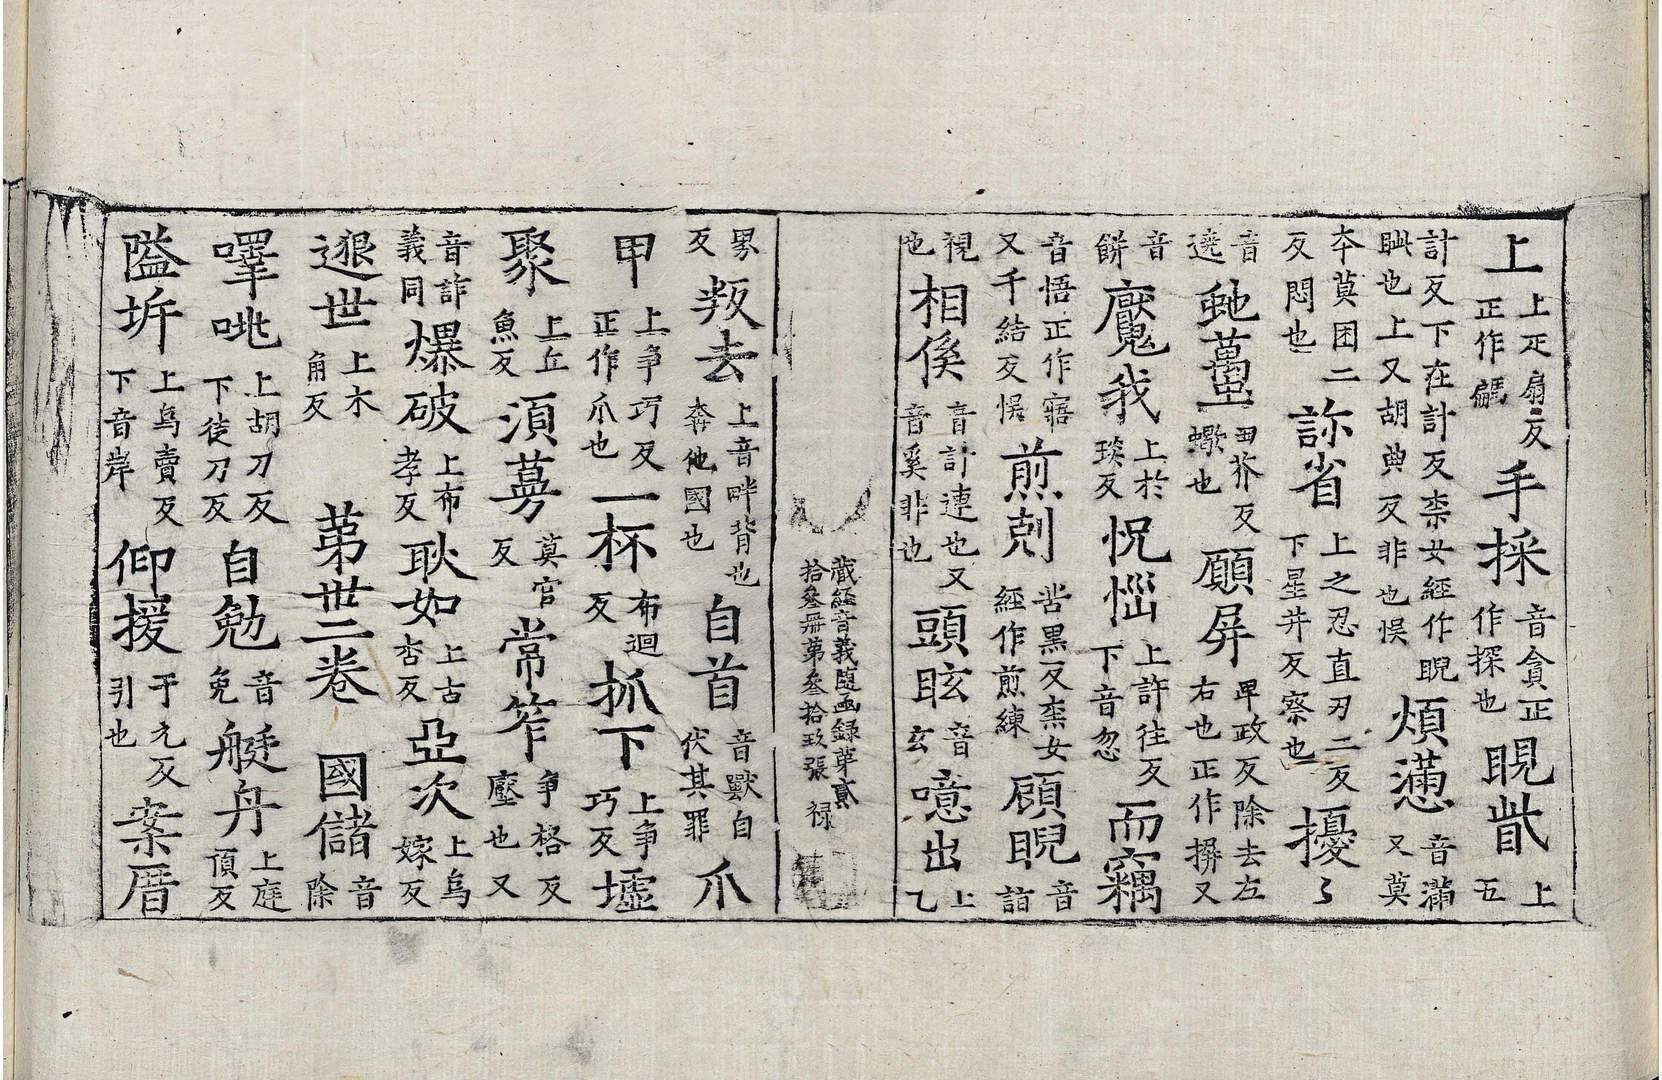 上 上疋扇二反正作𩦸 手採 音貪正作探也 睨眥 上五
計反下在計反柰女經作睨𥆧也上又胡典反非也悮 煩懣 音滿又莫
本莫困二反悶也 診省 上之忍直刃二反下星井反察也 擾
音遶 虵䘍 丑芥反蠍也 願屏 畀政反除去左右也正作摒又
音餅 魘我 上於琰反 怳惚 上許往反下音忽 而竊
音悟正作寤又千結反悮 煎剋 苦黑反柰女經作煎練 顧睨 音詣
視也 相傒 音計連也又音奚非也 頭眩 音玄 噫出 上乙
藏經音義隨函録第貳拾叄冊第叄拾玖張 禄
界反 叛去 上音畔背也奔他國也 自首 音獸自伏其罪 爪
甲 上爭巧反正作爪也 一杯 布迴反 抓下 上爭巧反 墟
聚 上丘魚反 須蔓 莫官反 常笮 爭格反壓也又
音詐義同 爆破 上布孝反 耿如 上古杏反 亞次 上烏嫁反
邈世 上木角反 第丗二卷 國儲 音除
嘷咷 上胡刀反下徒刀反 自勉 音免 艇舟 上庭頂反
隘圻 上烏賣反下音岸 仰援 于元反引也 案厝